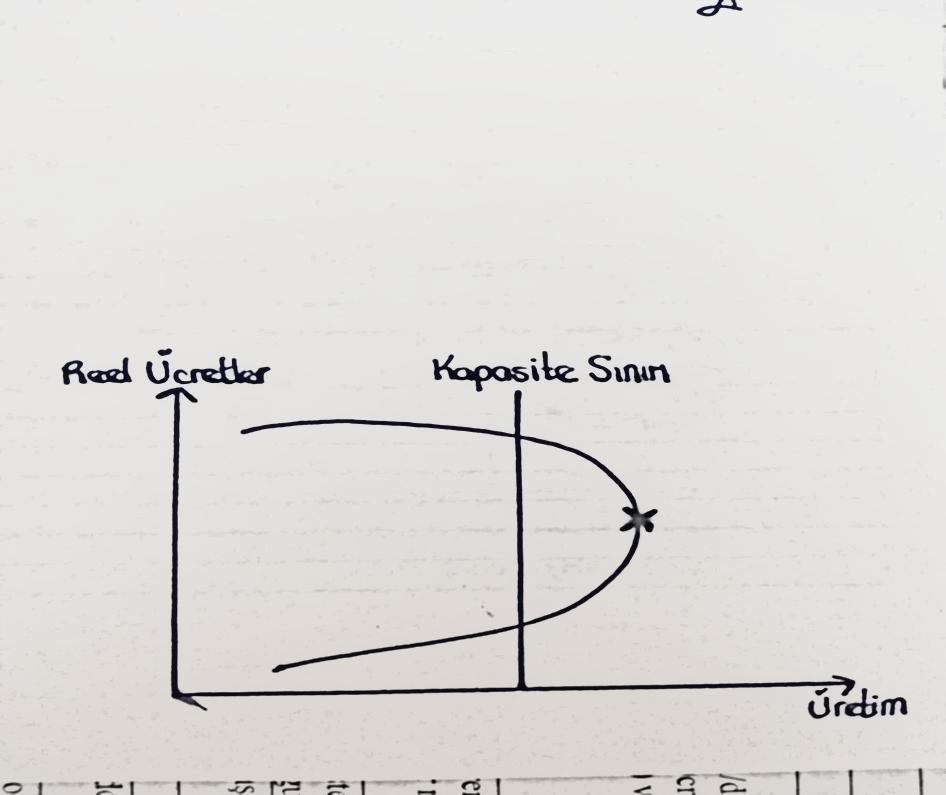 Reel Ücretler
Kapasite Sınırı
Üretim